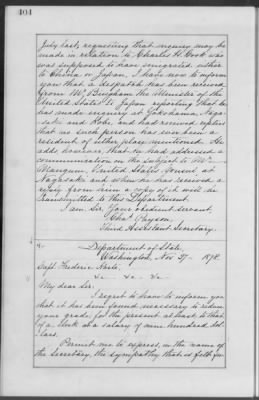 404
July last, requesting that enquiry may be
made in relation to Charles H. Cook who
was supposed to have emigrated either
to China or Japan, I have now to inform
you that a despatch has been received
from Mr. Bingham the Minister of the
United States to Japan reporting that he
has made enquiry at Yokohama,
and Kobe and had received replies
that no such person has ever been a
resident of either place mentioned. He
adds however, that he had addressed a
communication on the subject to Mr.
Mangum, United States Consul at
Nagasaki and when he has received a
reply from him a copy of it will be
transmitted to this Department.
I am Sir, Your obedient servant,
Chas Payson,
Third Assistant Secretary.
Department of State,
Washington, Nov 27 - 1878.
Capt. Frederic
&c &c &c
My dear Sir.
I regret to have to inform you
that it has been found necessary to reduce
your grade for the present at least to that
of a clerk at a salary of nine hundred dol-
lars.
Permit me to express, in the name of
the Secretary, the sympathy that is felt for